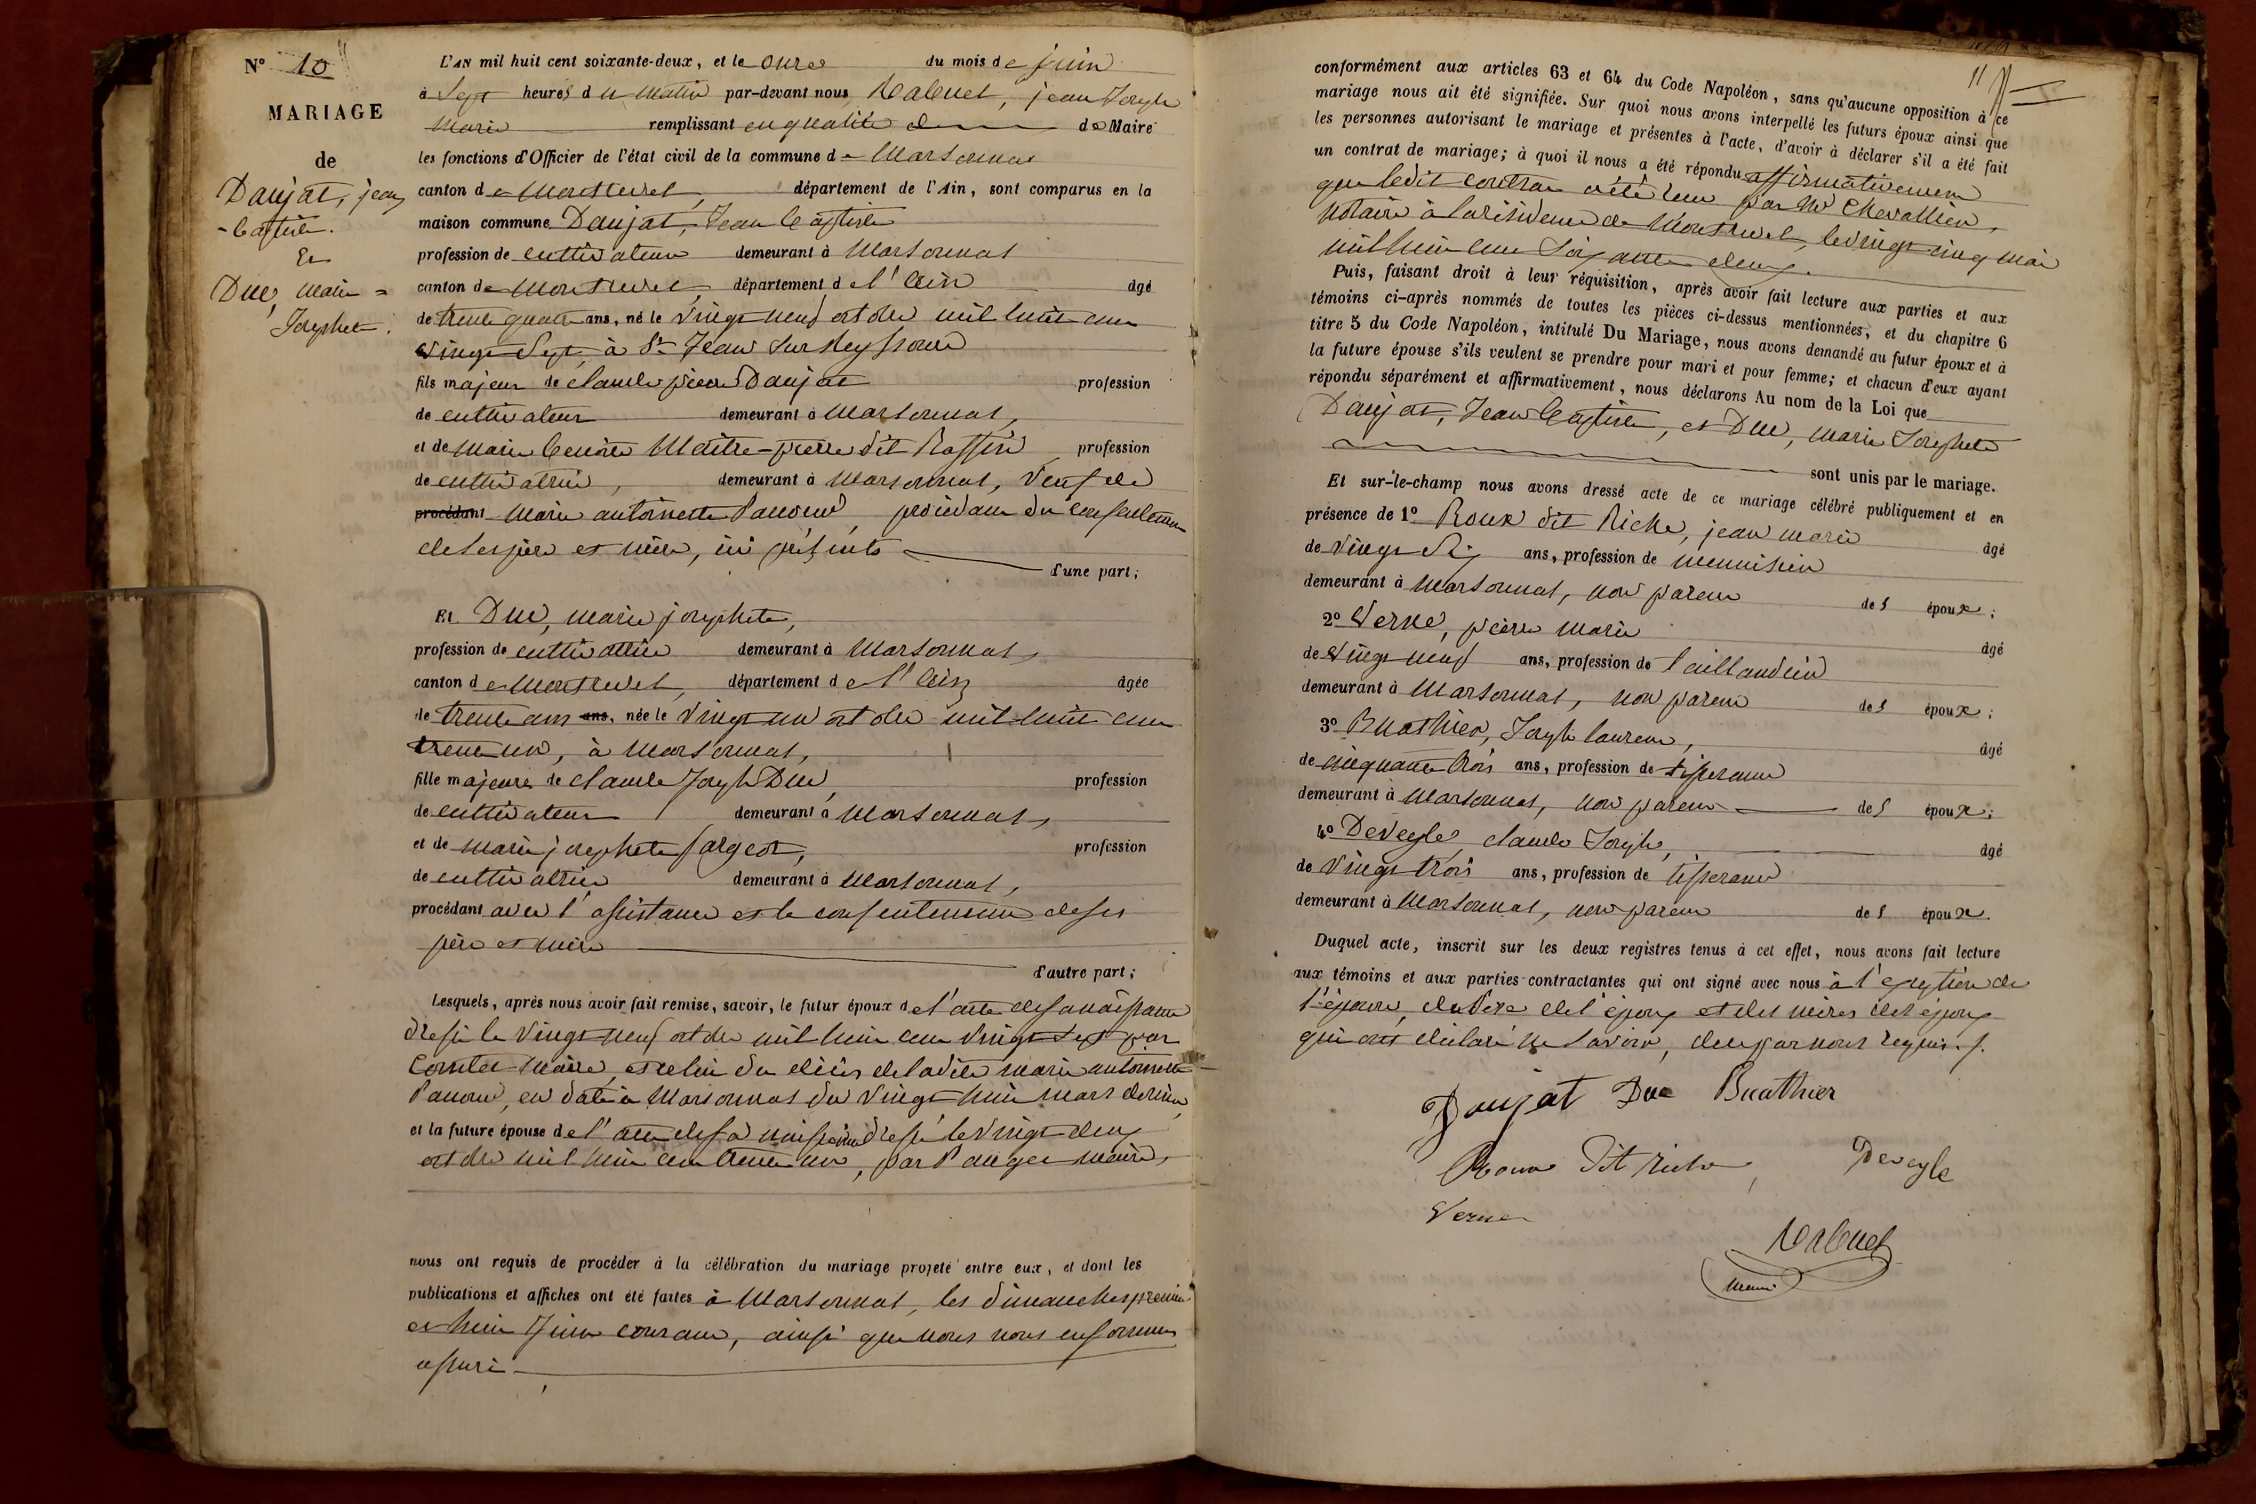 N° 10
MARIAGE
de
Daujat, jean
-Baptiste.
Et
Duc, Marie =
Josephete.
L'AN mil huit cent soixante-deux, et le onze du mois de juin
à Sept heures du matin par-devant nous, jean Joseph
Marie remplissant en qualité de Maire
les fonctions d'Officier de l'état civil de la commune de Marsonnas
canton de Montrevel, département de l'Ain, sont comparus en la
maison commune Daujat, Jean Baptiste
profession de cultivateur demeurant à Marsonnas
canton de Montrevel, département de l'Ain âgé
de trente quatre ans, né le vingt neuf octobre mil huit cent
vingt Sept, à St Jean Sur Reyssouze
fils majeur de claude pierre Daujat profession
de cultivateur demeurant à Marsonnas,
et de Marie Benoite Maitre-pierre dit Raffin profession
de cultivatrice, demeurant à Marsonnas, Veuf de
procédant Marie antoinette, procédant du consentement
de Ses père et mère, ici présents
d'une part;
Et Duc, marie josephete,
profession de cultivatrice demeurant à Marsonnas,
canton de Montrevel, département de l'Ain âgée
de trente ans ans, née le vingt un octobre mil huit cent
trente un, à Marsonnas,
fille majeure de claude Joseph Duc, profession
de cultivateur demeurant à Marsonnas,
et de marie josephete fargeot, profession
de cultivatrice demeurant à Marsonnas,
procédant avec l'assistance et le consentement de ses
père et mère
d'autre part;
Lesquels, après nous avoir fait remise, savoir, le futur époux de l'acte de sa naissance
dressé le vingt neuf octobre mil huit cent vingt Sept par
maire, et celui du décès de ladite marie antoinette
en date à Marsonnas du vingt huit mars dernier,
et la future épouse de l'acte de sa naissance dressé le vingt deux
octobre mil huit cent trente un, par Pauget maire,
nous ont requis de procéder à la célébration du mariage projeté entre eux, et dont les
publications et affiches ont été faites à Marsonnas, les dimanches premier
et huit Juin courant, ainsi que nous nous en sommes
assuré
conformément aux articles 63 et 64 du Code Napoléon, sans qu'aucune opposition à ce
mariage nous ait été signifiée. Sur quoi nous avons interpellé les futurs époux ainsi que
les personnes autorisant le mariage et présentes à l'acte, d'avoir à déclarer s'il a été fait
un contrat de mariage; à quoi il nous a été répondu affirmativement
que ledit contrat a été reçu par Me Chevallier,
notaire à la résidence de Montrevel, le vingt cinq mai
mil huit cent Soixante deux.
Puis, faisant droit à leur réquisition, après avoir fait lecture aux parties et aux
témoins ci-après nommés de toutes les pièces ci-dessus mentionnées, et du chapitre 6
titre 5 du Code Napoléon, intitulé Du Mariage, nous avons demandé au futur époux et à
la future épouse s'ils veulent se prendre pour mari et pour femme; et chacun d'eux ayant
répondu séparément et affirmativement, nous déclarons Au nom de la Loi que
Daujat, Jean Baptiste, et Duc, marie Josephete
sont unis par le mariage.
Et sur-le-champ nous avons dressé acte de ce mariage célébré publiquement et en
présence de 1° Roux dit Riche, jean marie âgé
de vingt Six ans, profession de menuisier
demeurant à Marsonnas, non parent des époux;
2° Verne, pierre Marie âgé
de vingt neuf ans, profession de taillandier
demeurant à Marsonnas, non parent des époux;
3° Buathier, Joseph laurent, âgé
de cinquante trois ans, profession de tisserand
demeurant à Marsonnas, non parent des époux;
4° Deveyle, claude Joseph, âgé
de vingt trois ans, profession de tisserand
demeurant à Marsonnas, non parent des époux.
Duquel acte, inscrit sur les deux registres tenus à cet effet, nous avons fait lecture
aux témoins et aux parties contractantes qui ont signé avec nous à l'exception de
l'épouse, du Père de l'époux et des mères des époux
qui ont déclaré ne Savoir, de ce par nous requis.
Daujat Duc Buathier
Roux dit riche, Deveyle
Verne
maire